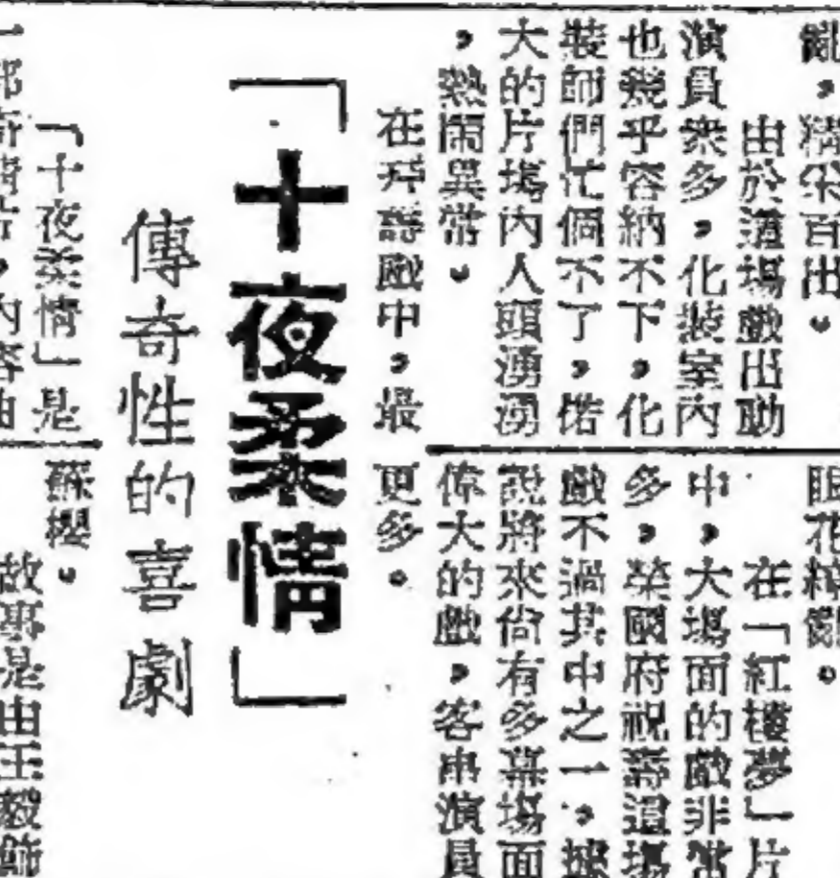 亂，精采百出。
由於這場戲出動
演員衆多，化裝室內
也幾乎容納不下，化
裝師們忙個不了，偌
大的片塲內人頭湧湧
，熱鬧異常。
在拜壽戲中，最
眼花繚亂。
在「紅樓夢」片
中，大塲面的戲非常
多，榮國府祝壽這塲
戲不過其中之一，據
說將來尙有多幕塲面
偉大的戲，客串演員
更多。
「十夜柔情」
傳奇性的喜劇
「十夜柔情」是
一部奇情片，內容由
蘇櫻。
故事是由王毅飾